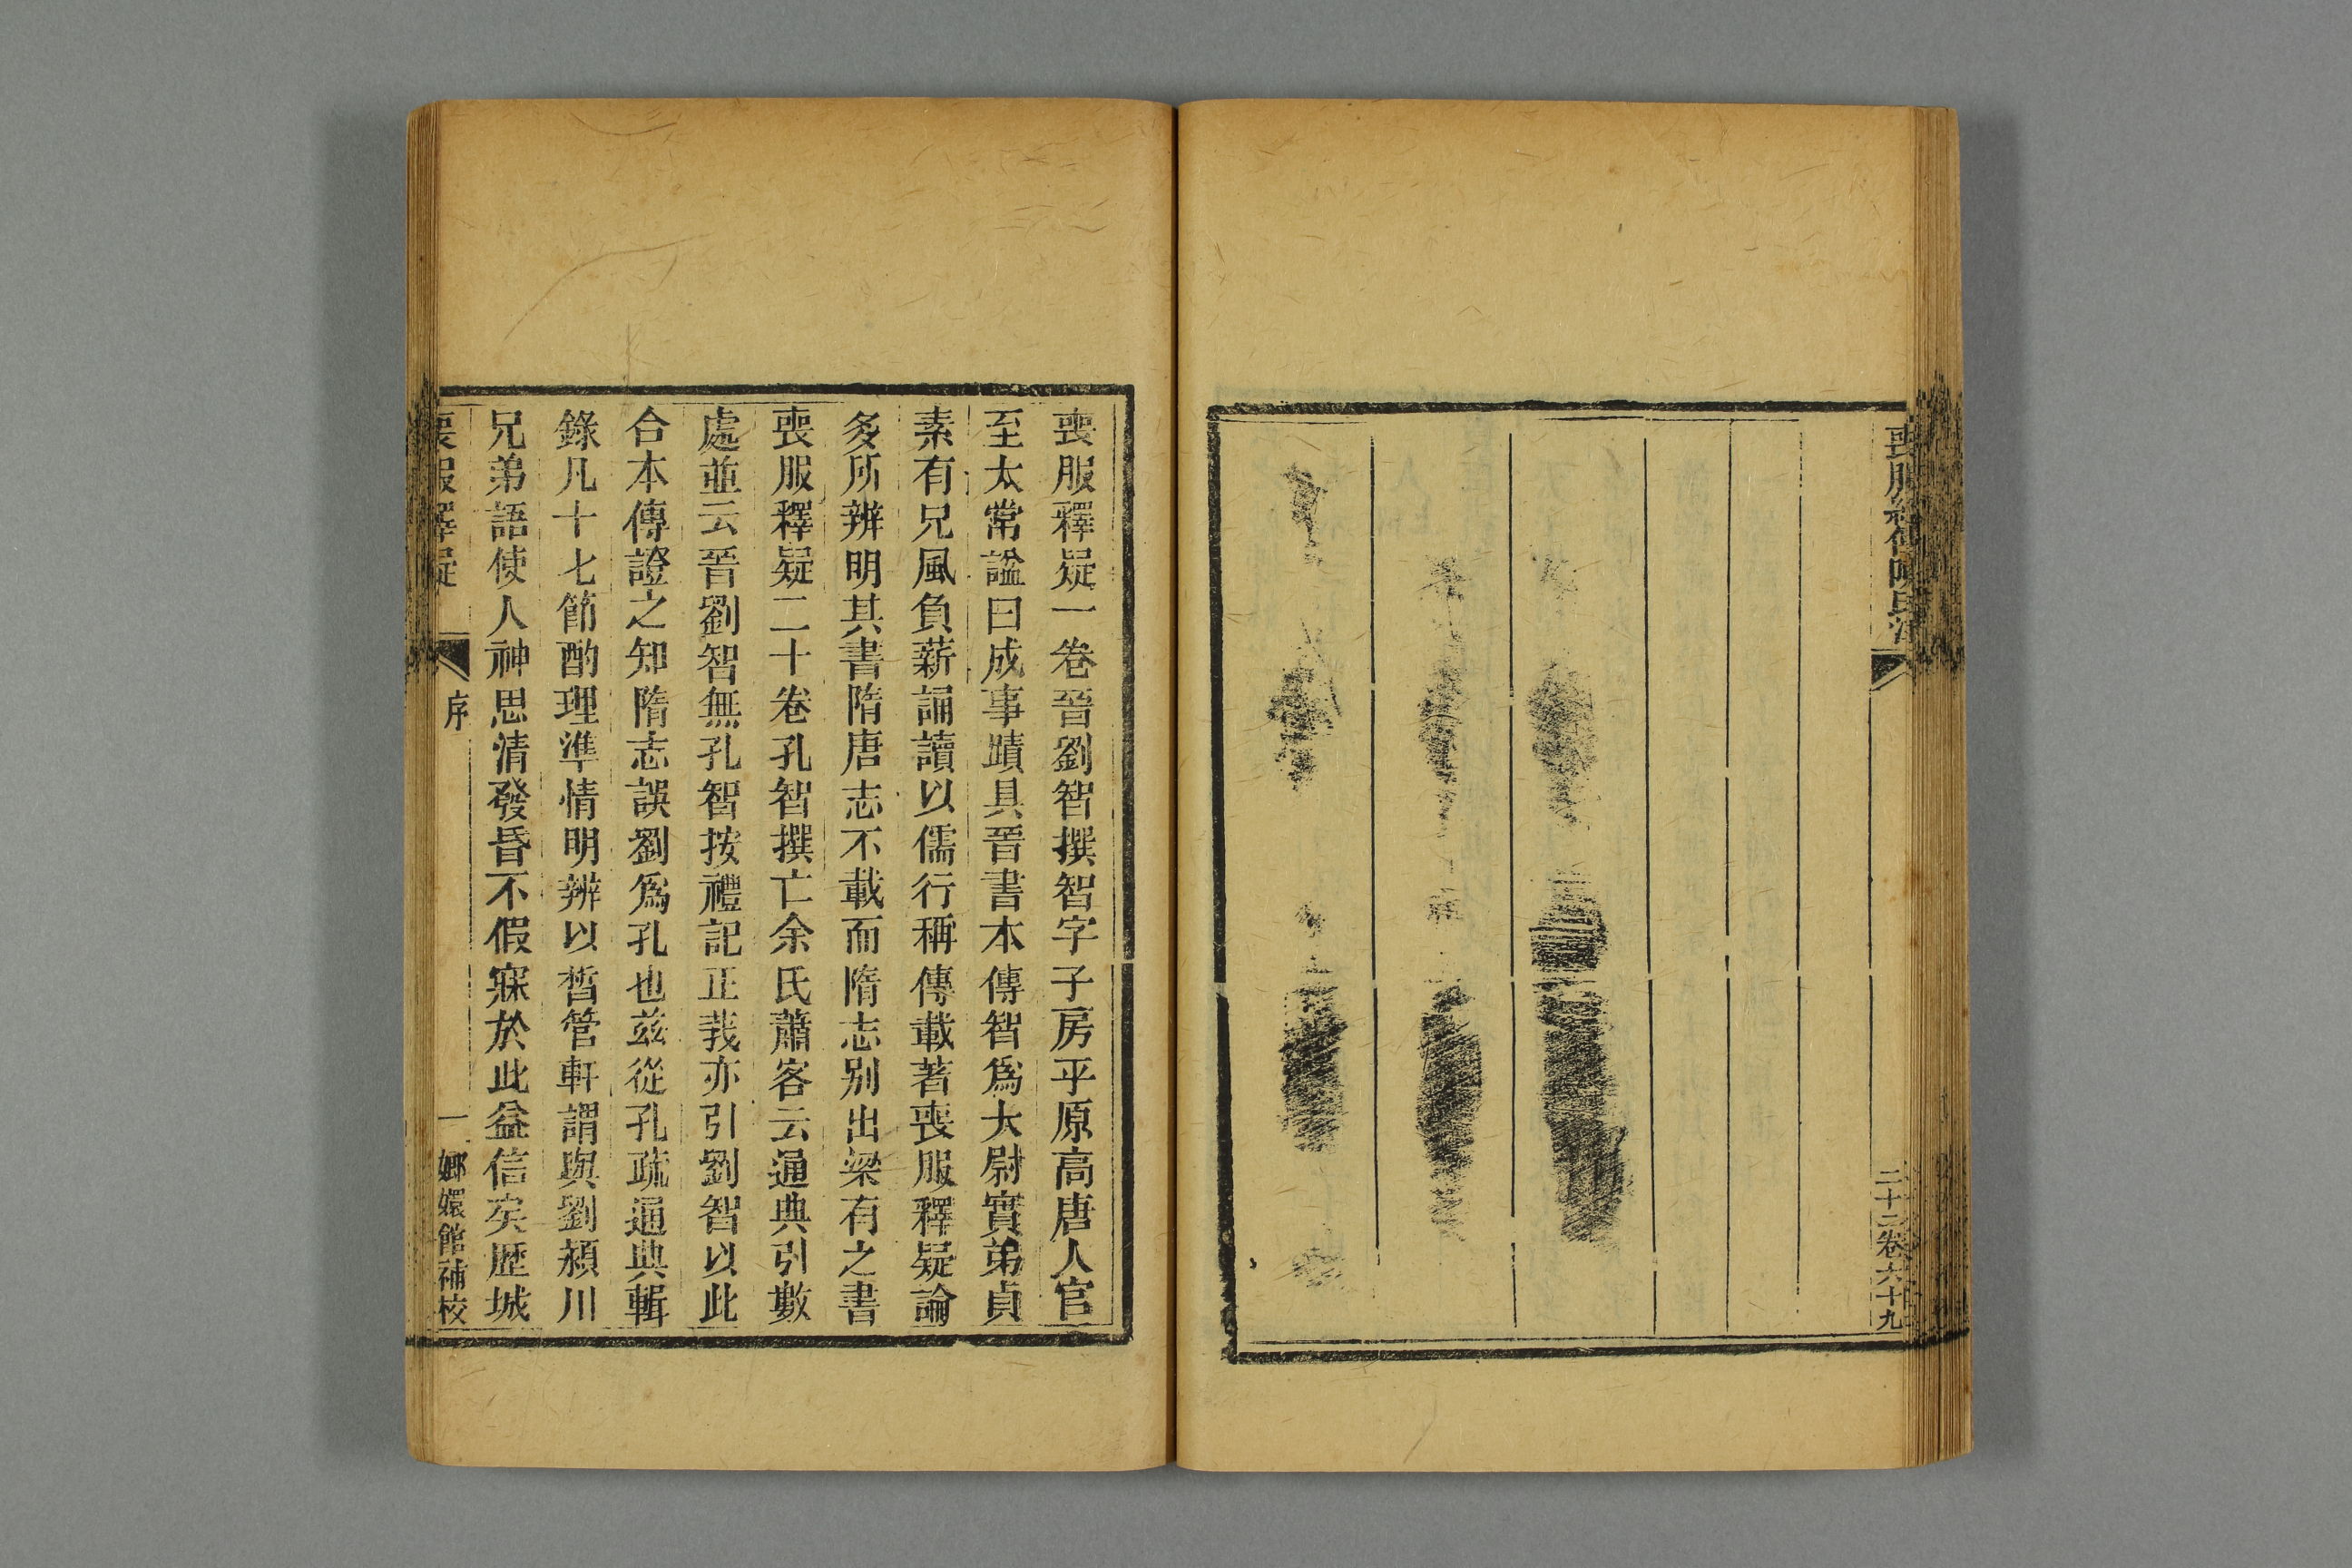 喪服經傳陳氏注
二十二卷六十九
喪服釋疑一卷晉劉智撰智字子房平原高唐人官
至太常諡曰成事蹟具晉書本傳智為太尉實弟貞
素有兄風負薪誦讀以儒行稱傳載著喪服釋疑論
多所辨明其書隋唐志不載而隋志別出梁有之書
喪服釋疑二十卷孔智撰亡余氏蕭客云通典引數
處並云晉劉智無孔智按禮記正義亦引劉智以此
合本傳證之知隋志誤劉為孔也茲從孔疏通典輯
錄凡十七節酌理準情明辨以晳管軒謂與劉潁川
兄弟語使人神思清發昏不假寐於此益信矣歷城
喪服釋疑
序
一
嫏嬛館補校